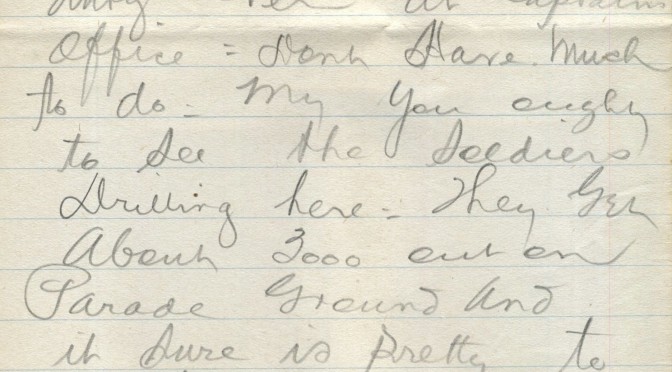 at Captains
Office = Dont Have Much
to do - My You ought
to see the Soldiers
Drilling here - They Get
About 3000 out on
Parade Ground And
it sure is pretty to